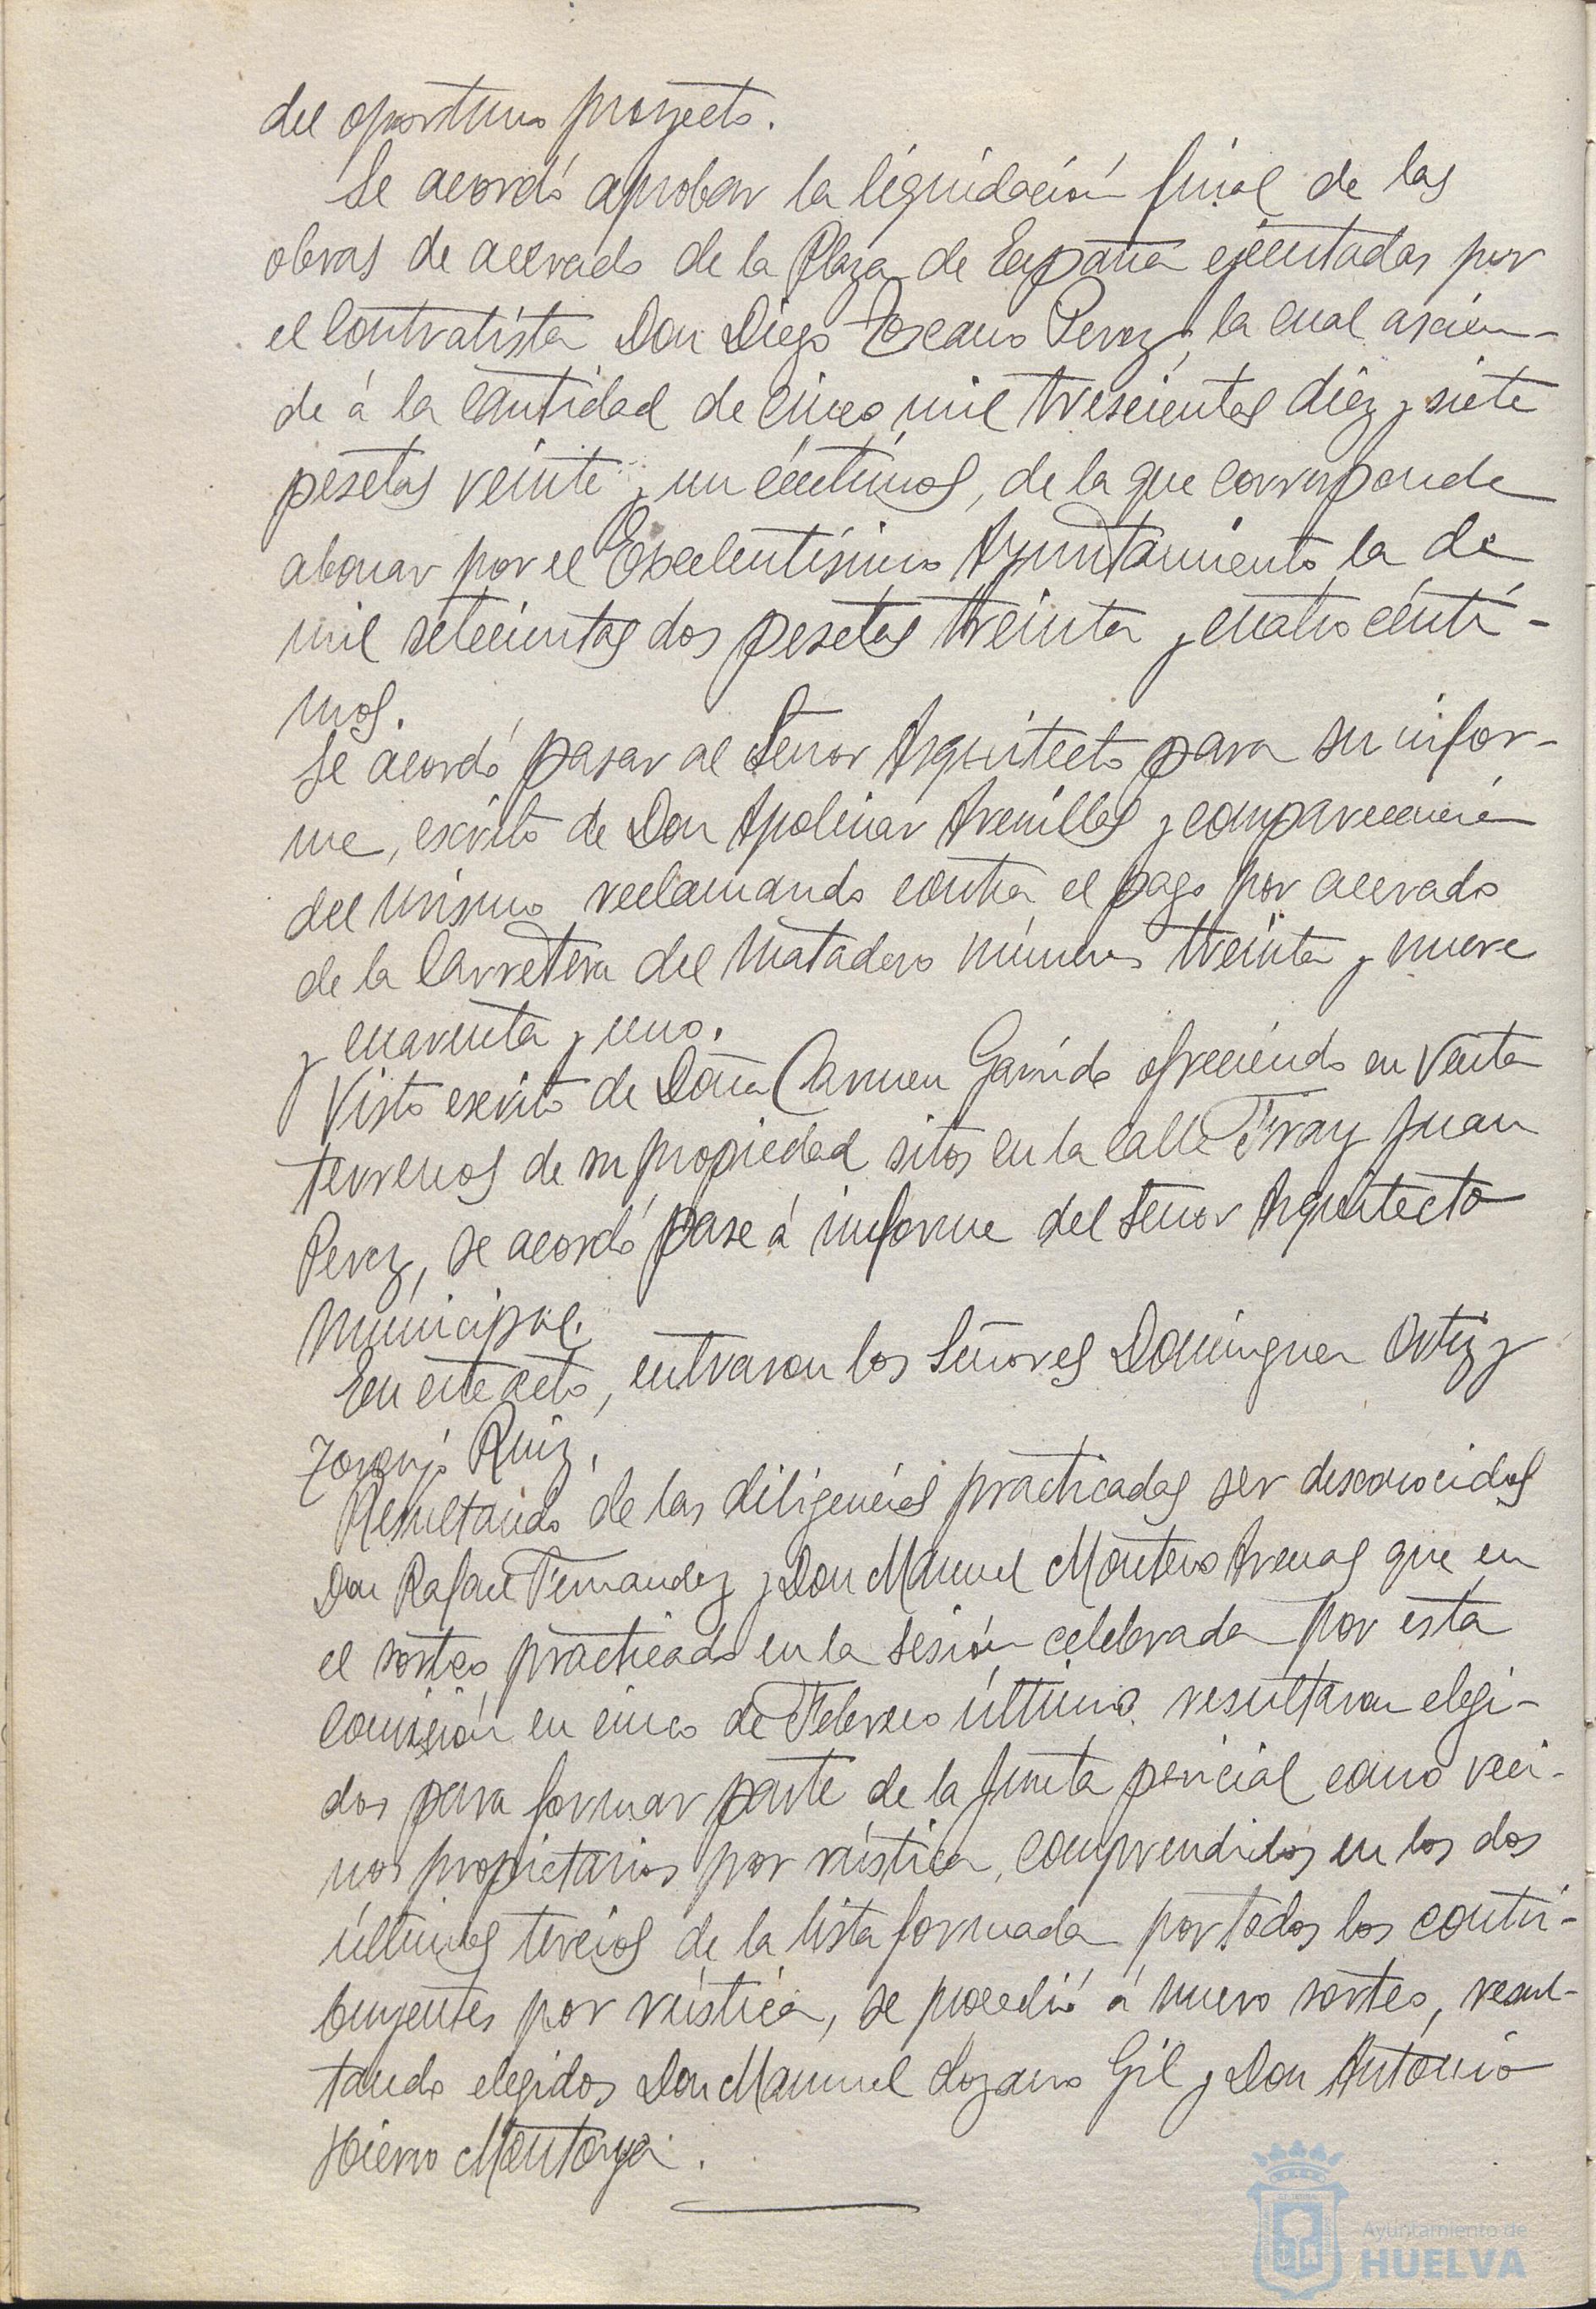 del oportuno proyecto.
Se acordó aprobar la liquidación final de las
obras de acerado de la Plaza de España ejecutadas por
el Contratista Don Diego Toscano Perez, la cual ascien-
de á la cantidad de cinco mil trescientas diez y siete
pesetas veinte y un céntimos, de la que corresponde
abonar por el Excelentísimo Ayuntamiento la de
mil setecientas dos pesetas treinta y cuatro cénti-
mos.
Se acordó pasar al Señor Arquitecto para su infor-
me, escrito de Don Apolinar Arenillas y comparecencia
del mismo reclamando contra el pago por acerado
de la Carretera del Matadero número treinta y nueve
y cuarenta y uno.
Visto escrito de Doña Carmen Garrido ofreciendo en venta
terrenos de su propiedad sitos en la calle Fray Juan
Perez, se acordó pase á informe del Señor Arquitecto
Municipal.
En este acto, entraron los Señores Dominguez Ortiz y
Ruiz.
Resultando de las diligencias practicadas ser desconocidos
Don Rafael Fernandez y Don Manuel Montero Arenas que en
el sorteo practicado en la sesión celebrada por esta
Comisión en cinco de Febrero último resultaron elegi-
dos para formar parte de la Junta pericial como veci-
nos propietarios por rústica, comprendidos en los dos
últimos tercios de la lista formada por todos los contri-
buyentes por rústica, se procedió á nuevo sorteo, resul-
tando elegidos Don Manuel Lozano Gil y Don Antonio
Hierro Montoya.
Ayuntamiento de
HUELVA